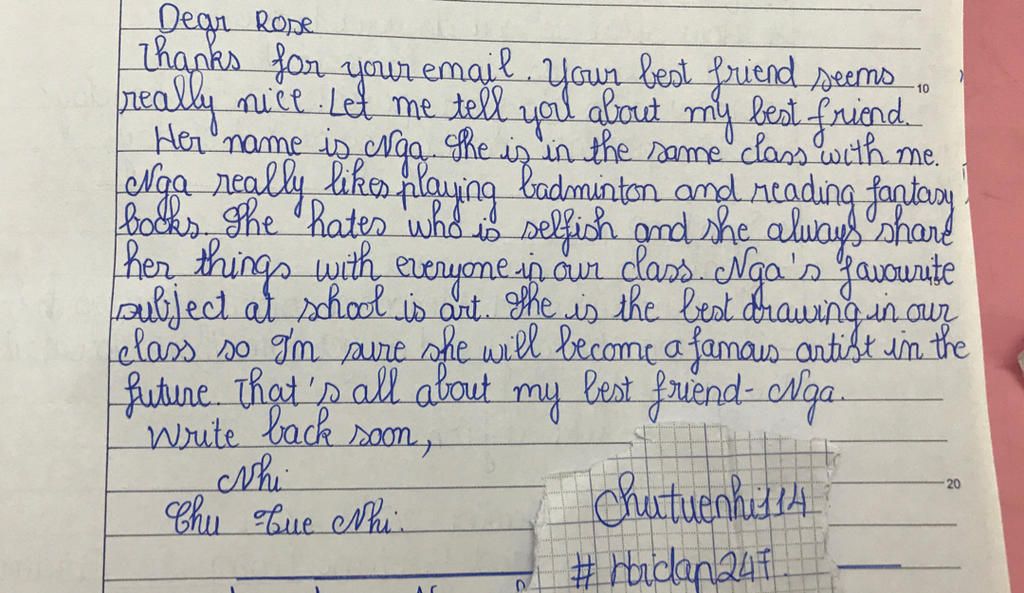 Dear Rose
Thanks for your email. Your best friend seems
10
really nice. Let me tell you about my best friend.
Her name is Nga. She is in the same class with me.
Nga really likes playing badminton and reading fantasy
books. She hates who is selfish and she always share
her things with everyone in our class. Nga's favourite
subject at school is art. She is the best drawing in our
class so I'm sure she will become a famous artist in the
future. That's all about my best friend - Nga.
Write back soon,
Nhi
20
Chu Tue Nhi.
Chutuenhi114
# Hoidap247.